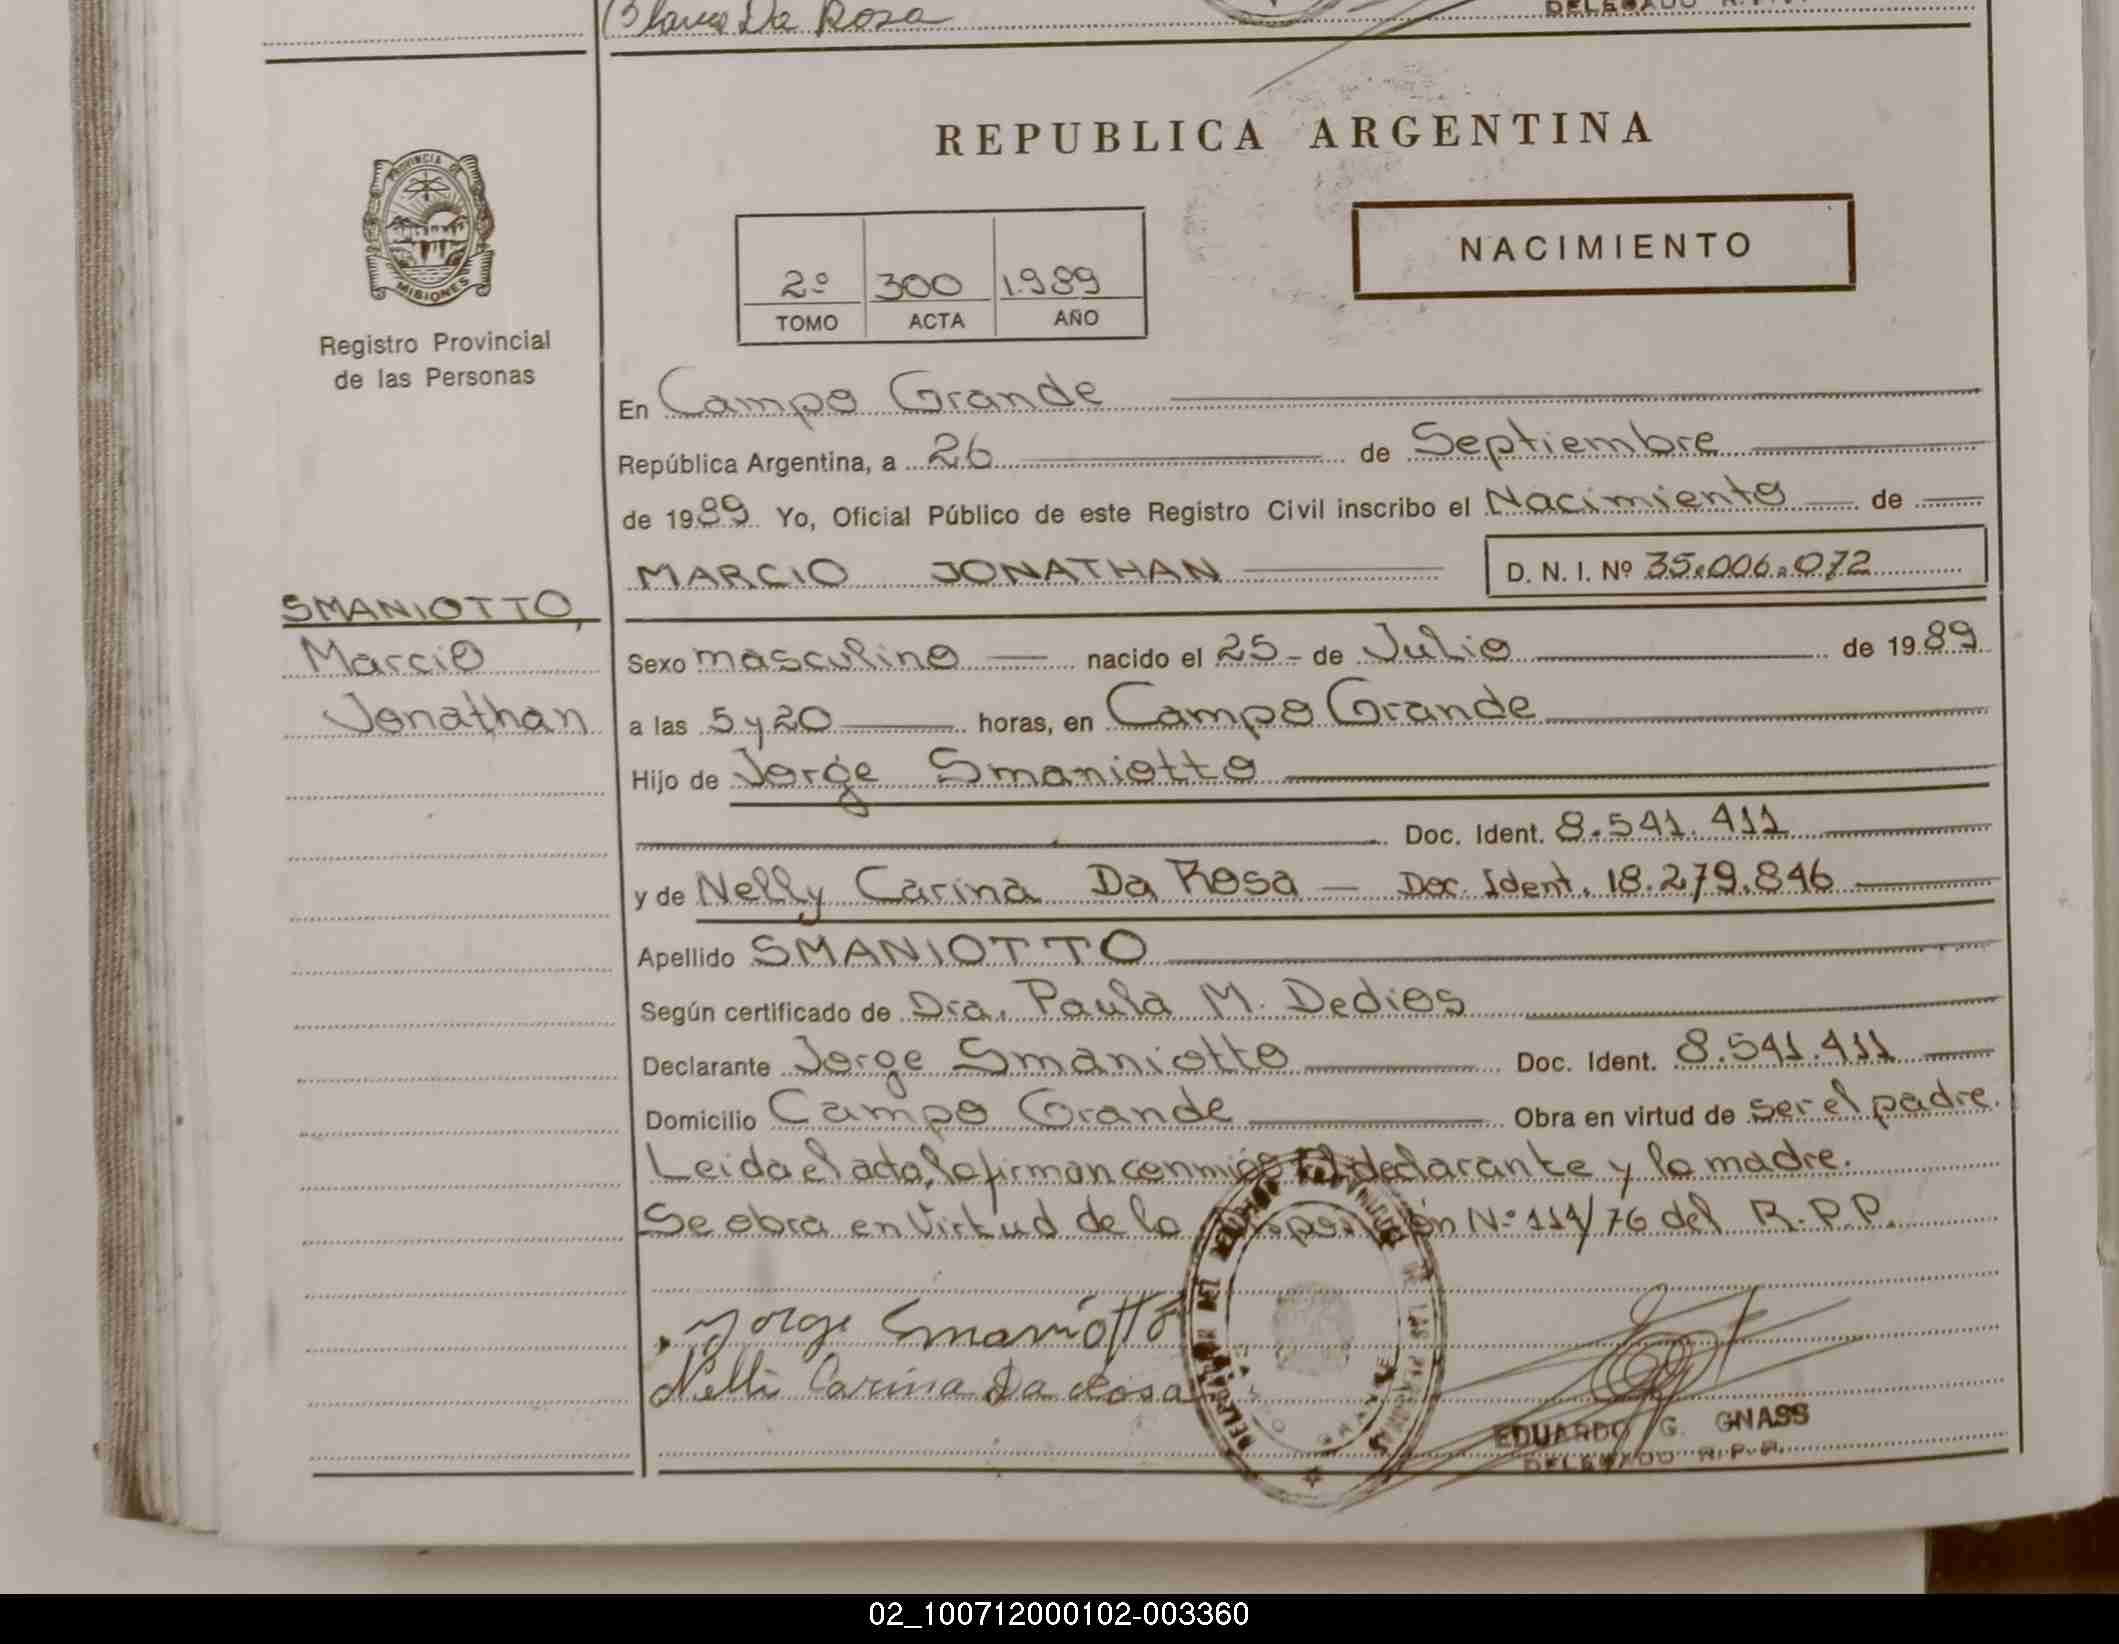 Blanca Da Rosa
DELEGADO R.P.P.
REPUBLICA ARGENTINA
PROVINCIA DE
MISIONES
Registro Provincial
de las Personas
2º 300 1.989
TOMO ACTA AÑO
NACIMIENTO
En Campo Grande
República Argentina, a 26 de Septiembre
de 1989 Yo, Oficial Público de este Registro Civil inscribo el Nacimiento de
MARCIO JONATHAN D. N. I. Nº 35.006.072
SMANIOTTO,
Marcio
Jonathan
Sexo masculino nacido el 25 - de Julio de 1989
a las 5 y 20 horas, en Campo Grande
Hijo de Jorge Smaniotto
Doc. Ident. 8.541.411
y de Nelly Carina Da Rosa — Doc. Ident. 18.279.846
Apellido SMANIOTTO
Según certificado de Dra. Paula M. Dedios
Declarante Jorge Smaniotto Doc. Ident. 8.541.411
Domicilio Campo Grande Obra en virtud de ser el padre.
Leida el acta, la firman conmigo el declarante y la madre.
Se obra en Virtud de la Disposición Nº 114/76 del R.P.P.
Jorge Smaniotto
Nelli Carina Da Rosa
EDUARDO G. GNASS
DELEGADO R.P.P.
02_100712000102-003360